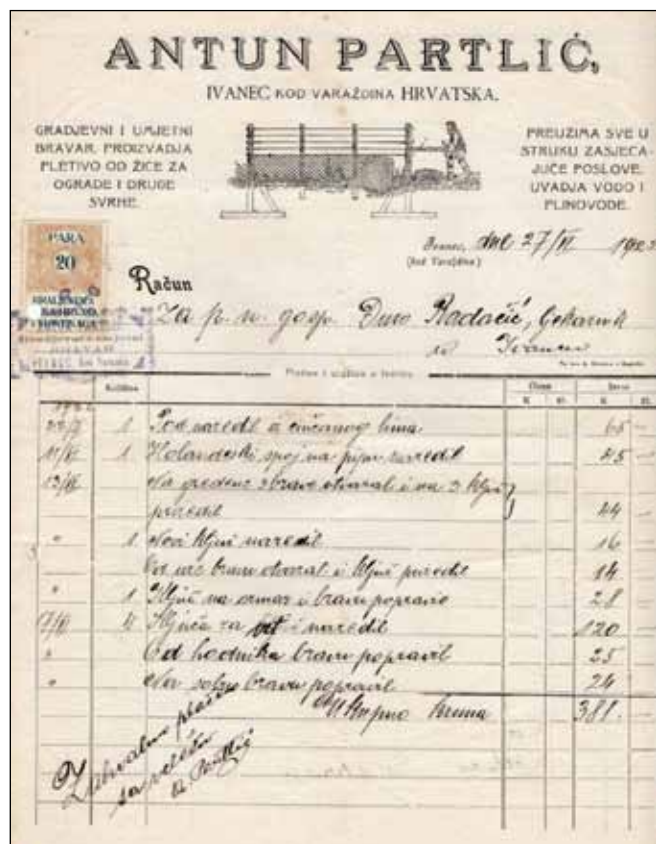 ANTUN PARTLIĆ,
IVANEC KOD VARAŽDINA HRVATSKA.
GRADJEVNI I UMJETNI
BRAVAR. PROIZVADJA
PLETIVO OD ŽICE ZA
OGRADE I DRUGE
SVRHE.
PREUZIMA SVE U
STRUKU ZASJECA-
JUĆE POSLOVE.
UVADJA VODO I
PLINOVODE.
PARA
20
Ivanec, dne 27/VI 192
(kod Varaždina)
Račun
Za p. n. gosp. Đuro Radačić, ljekarnik
u Ivancu
Količina
K
K
1 Pod naredil iz cinčanog lima 65 —
11/VI 1 Holandeski spoj na naredil 45 —
13/VI Na 3 ključ
priredil 44 —
" 1 Novi ključ naredil 16
bravu otvaral i ključ priredil 14
" 1 Ključ na ormar i bravu popravio 28
17/VI 4 Ključa za naredil 120
" Od hodnika bravu popravil 25
" bravu popravil 24
Ukupno kruna 381.—
Zahvalno
A. Partlić